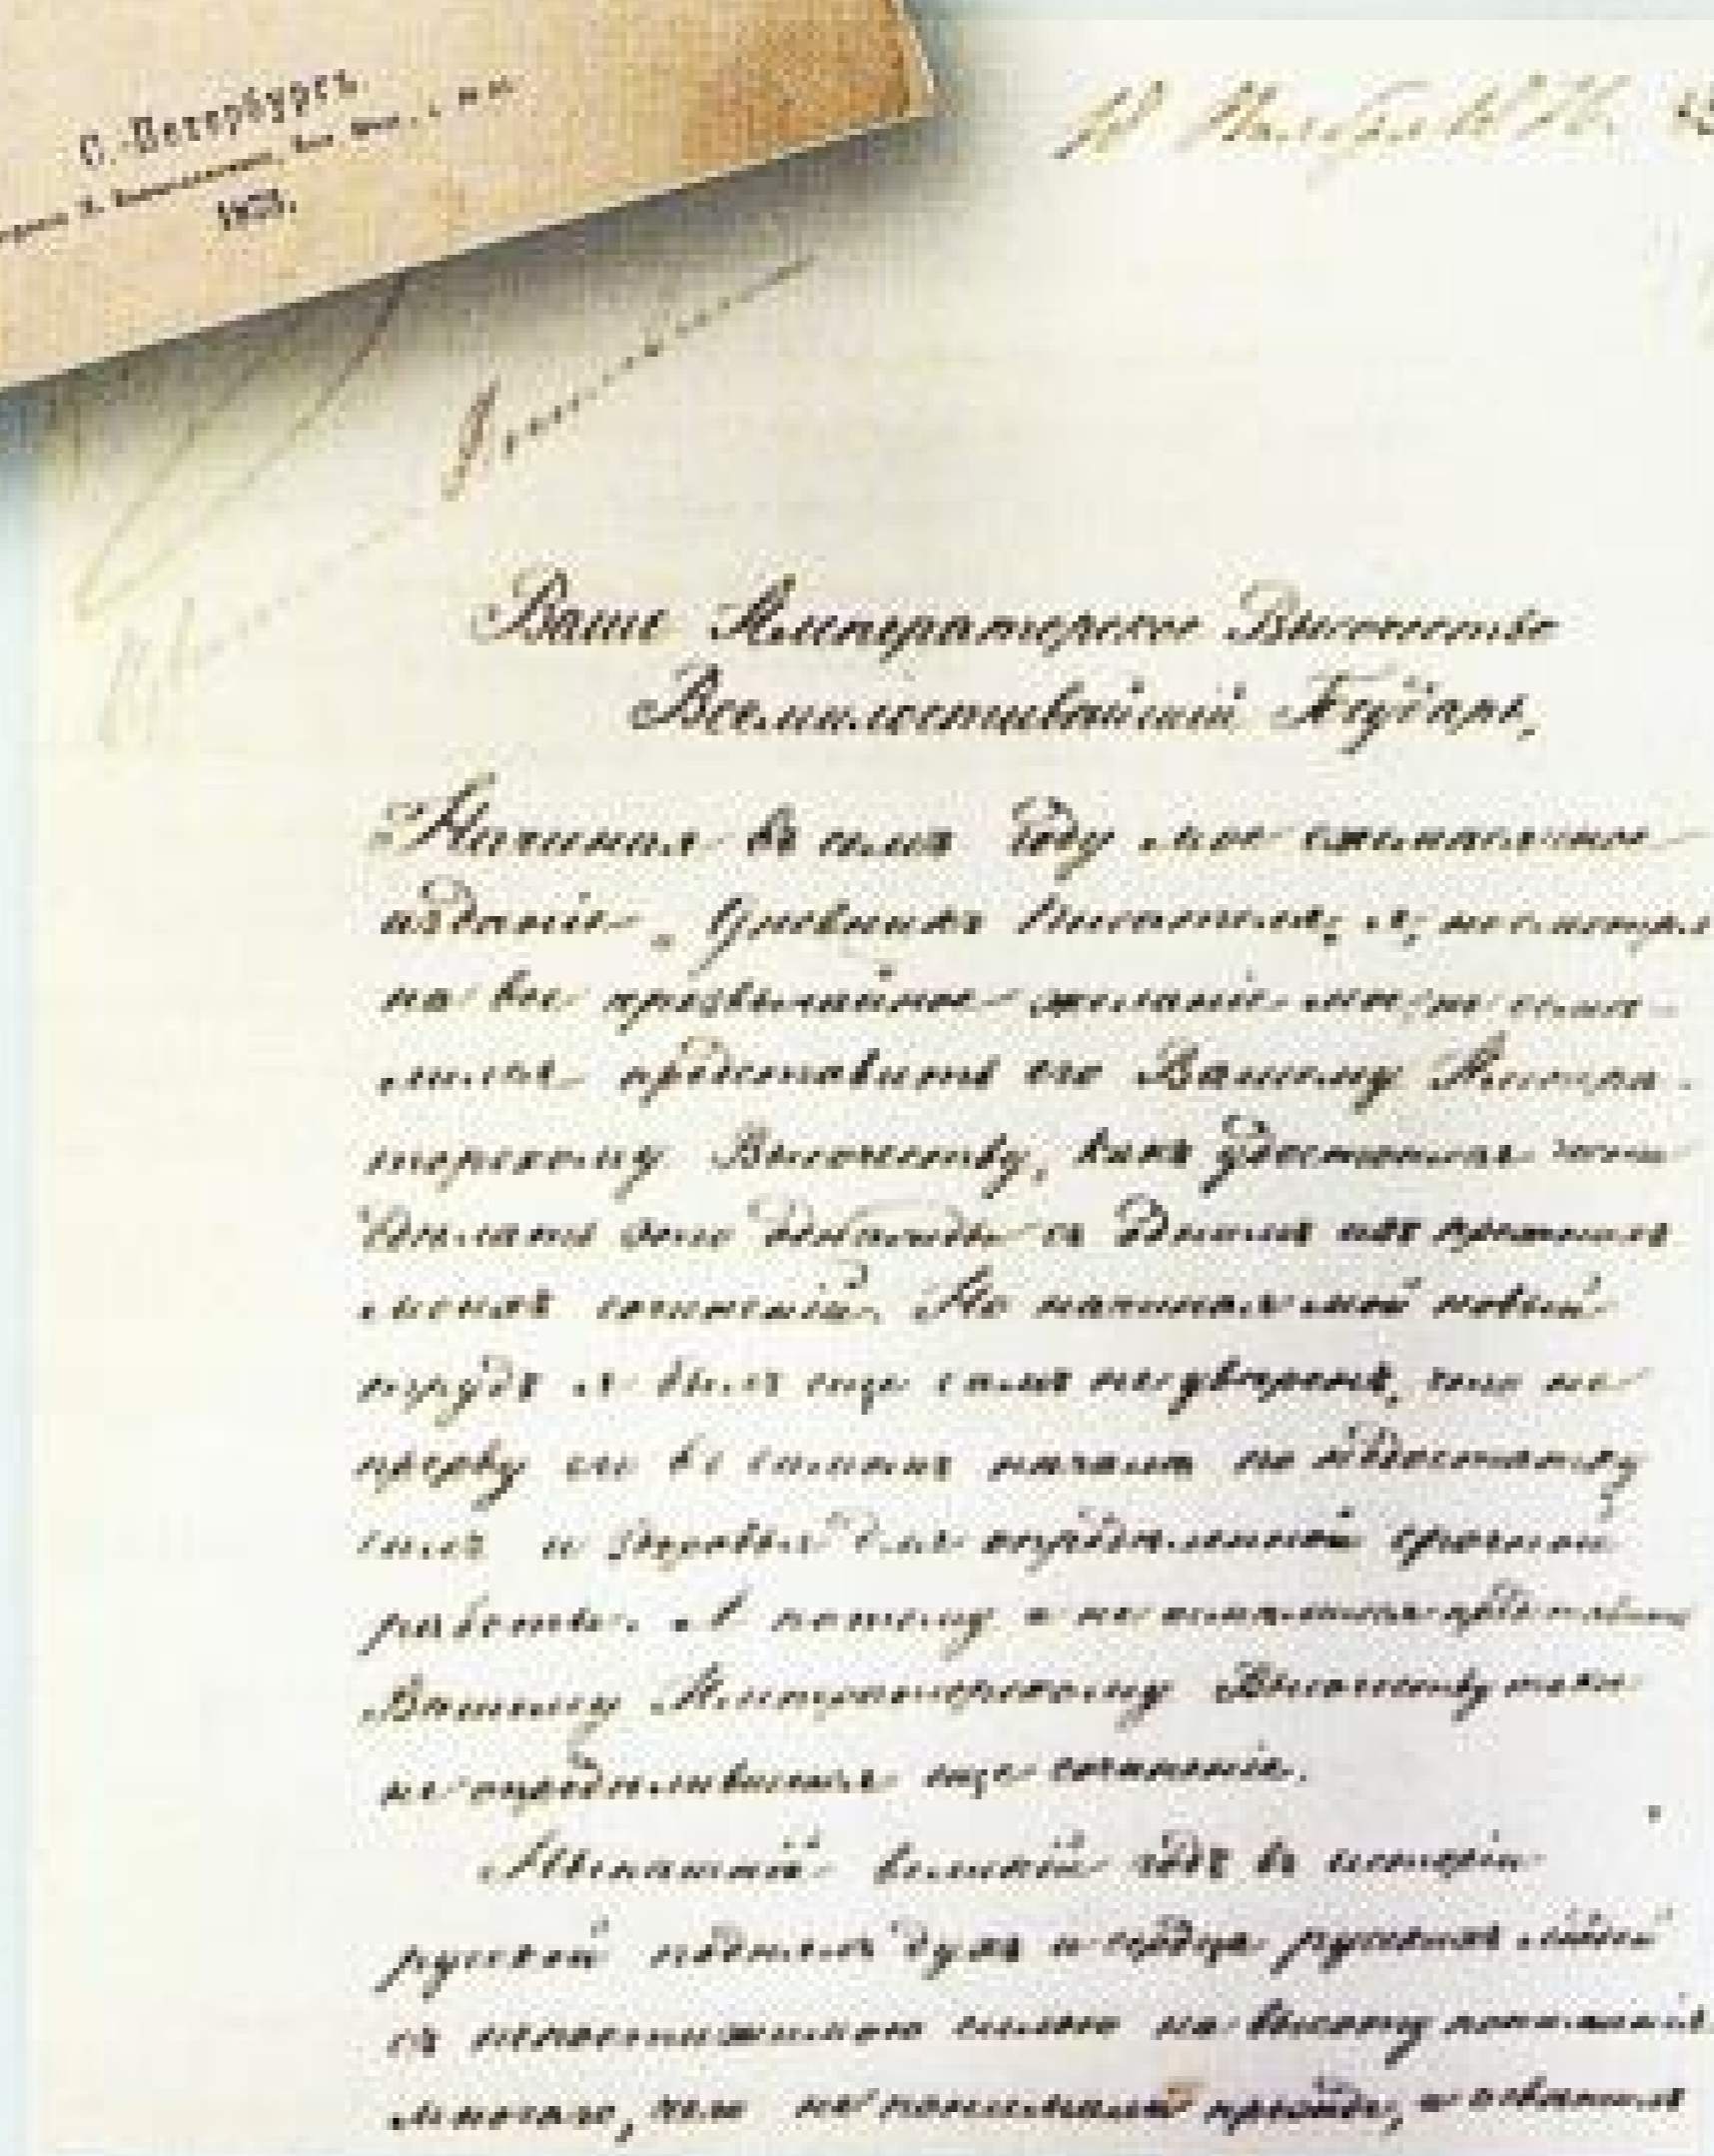 С.-Петербургъ.
Ваше Императорское Высочество
Всемилостивѣйшій Государь,
Начиная въ семъ году мое ежемѣсячное
изданіе „Дневникъ Писателя", я, несмотря
на все чрезвычайное желаніе мое, не осмѣ-
лился представить его Вашему Импера-
торскому Высочеству, какъ удостоился
сдѣлать это однажды съ однимъ изъ прежнихъ
моихъ сочиненій. Но начиная мой новый
трудъ я былъ еще самъ не увѣренъ, что не
прерву его въ самомъ началѣ по недостатку
силъ и здоровья для опредѣленной срочной
работы. А потому и не осмѣливался
Вашему Императорскому Высочеству такое
не опредѣлившееся еще сочиненіе.
Нынѣшній великій годъ въ исторіи
русской поднялъ духъ и сердца русскихъ людей
съ непостижимою силою на высоту пониманія
многаго, чего не понимали прежде, и